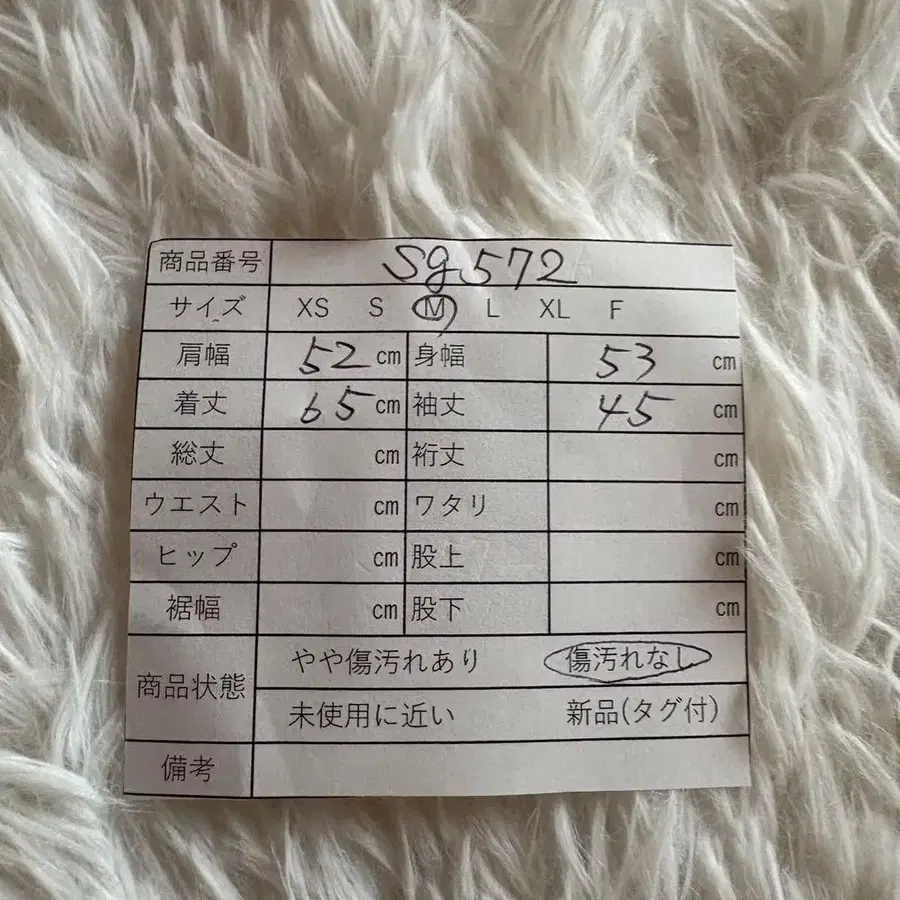 商品番号 Sg572
サイズ XS S M L XL F
肩幅 52 cm 身幅 53 cm
着丈 65 cm 袖丈 45 cm
総丈 cm 裄丈 cm
ウエスト cm ワタリ cm
ヒップ cm 股上 cm
裾幅 cm 股下 cm
商品状態
やや傷汚れあり 傷汚れなし
未使用に近い 新品(タグ付)
備考